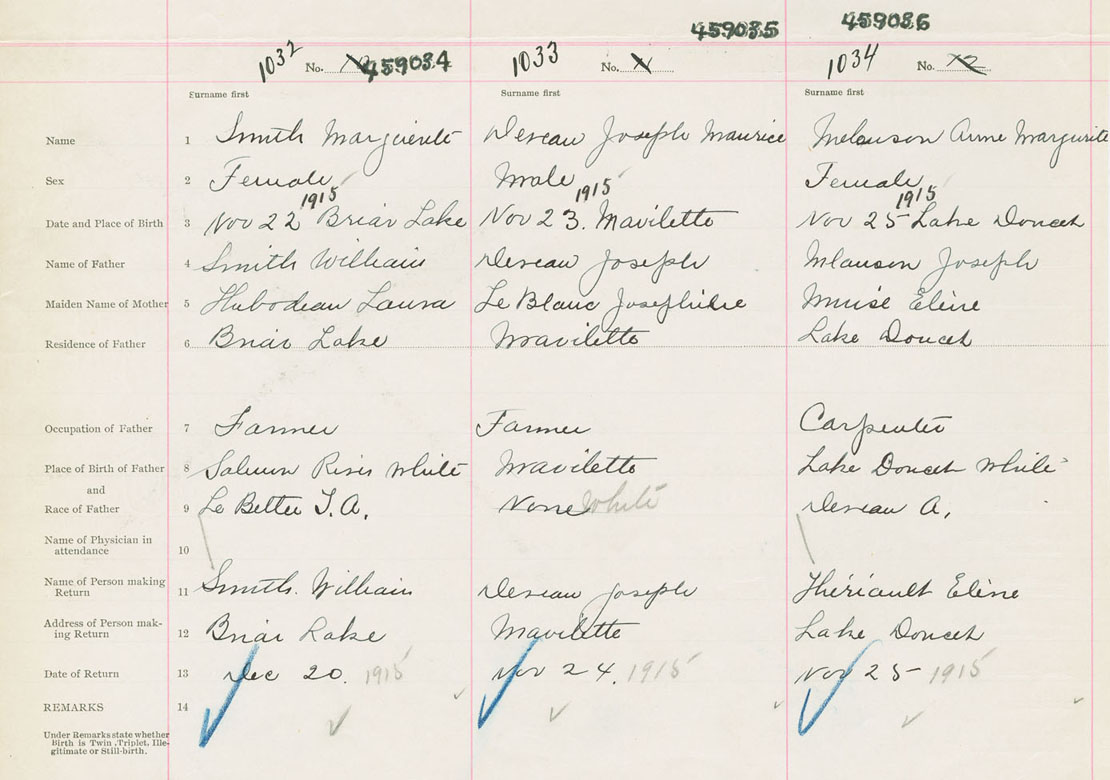 459035 459036
1032 No. 459034 1033 No. 1034 No. 12
Surname first Surname first Surname first
Name 1 Smith Marguerite Deveau Joseph Maurice Melanson Anne Margurite
Sex 2 Female Male Female
1915 1915 1915
Date and Place of Birth 3 Nov 22 Briar Lake Nov 23. Mavilette Nov 25 Lake Doucet
Name of Father 4 Smith William Deveau Joseph Mlanson Joseph
Maiden Name of Mother 5 Hubodeau Laura Le Blanc Josephine Muise Eline
Residence of Father 6 Briar Lake Mavilette Lake Doucet
Occupation of Father 7 Farmer Farmer Carpenter
Place of Birth of Father 8 Salmon River White Mavilette Lake Doucet White
and
Race of Father 9 Le Better T. A. None White Deveau A.
Name of Physician in
attendance 10
Name of Person making
Return 11 Smith. William Deveau Joseph Thériault Eline
Address of Person mak-
ing Return 12 Briar Lake Mavilette Lake Doucet
Date of Return 13 Dec 20. 1915 Nov 24. 1915 Nov 25 1915
REMARKS 14
Under Remarks state whether
Birth is Twin, Triplet, Ille-
gitimate or Still-birth.